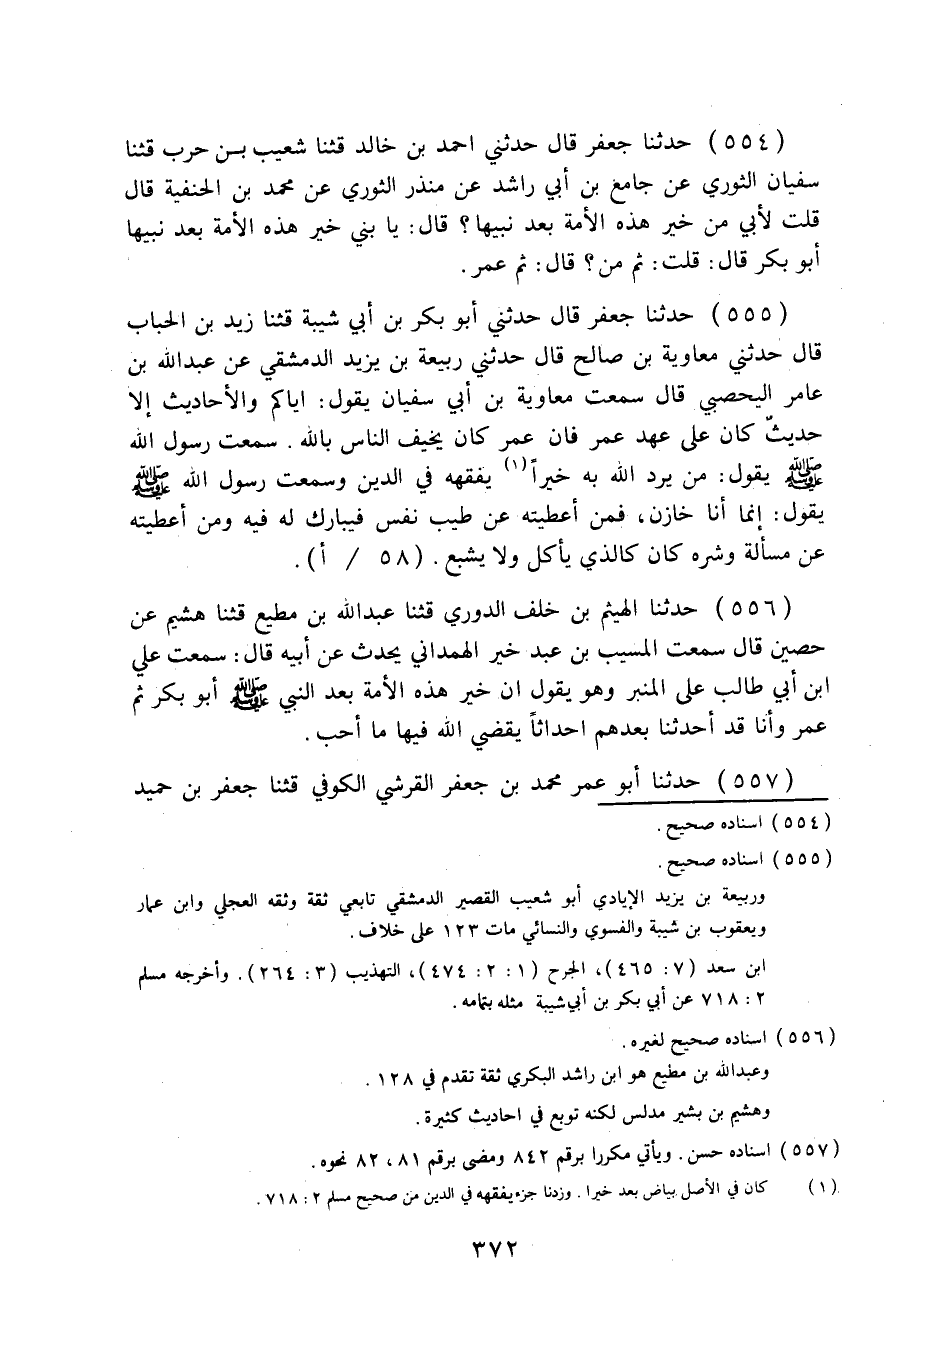 (٥٥٤) حدثنا جعفر قال حدثني احمد بن خالد قثنا شعيب بـن حرب قثنا
سفيان الثوري عن جامع بن أبي راشد عن منذر الثوري عن محمد بن الحنفية قال
قلت لأبي من خير هذه الأمة بعد نبيها؟ قال: يا بني خير هذه الأمة بعد نبيها
أبو بكر قال: قلت: ثم من؟ قال: ثم عمر.
(٥٥٥) حدثنا جعفر قال حدثني أبو بكر بن أبي شيبة قثنا زيد بن الحباب
قال حدثني معاوية بن صالح قال حدثني ربيعة بن يزيد الدمشقي عن عبدالله بن
عامر اليحصبي قال سمعت معاوية بن أبي سفيان يقول: اياكم والأحاديث إلا
حديثٌ كان على عهد عمر فان عمر كان يخيف الناس بالله. سمعت رسول الله
ﷺ يقول: من يرد الله به خيراً(١) يفقهه في الدين وسمعت رسول الله ﷺ
يقول: إنما أنا خازن، فمن أعطيته عن طيب نفس فيبارك له فيه ومن أعطيته
عن مسألة وشره كان كالذي يأكل ولا يشبع. (٥٨ / أ).
(٥٥٦) حدثنا الهيثم بن خلف الدوري قثنا عبدالله بن مطيع قثنا هشيم عن
حصين قال سمعت المسيب بن عبد خير الهمداني يحدث عن أبيه قال: سمعت علي
ابن أبي طالب على المنبر وهو يقول ان خير هذه الأمة بعد النبي ﷺ أبو بكر ثم
عمر وأنا قد أحدثنا بعدهم احداثاً يقضي الله فيها ما أحب.
(٥٥٧) حدثنا أبو عمر محمد بن جعفر القرشي الكوفي قثنا جعفر بن حميد
(٥٥٤) اسناده صحيح.
(٥٥٥) اسناده صحيح.
وربيعة بن يزيد الإيادي أبو شعيب القصير الدمشقي تابعي ثقة وثقه العجلي وابن عمار
ويعقوب بن شيبة والفسوي والنسائي مات ١٢٣ على خلاف.
ابن سعد (٧: ٤٦٥)، الجرح (١: ٢: ٤٧٤)، التهذيب (٣: ٢٦٤). وأخرجه مسلم
٢: ٧١٨ عن أبي بكر بن أبي شيبة مثله بتمامه.
(٥٥٦) اسناده صحيح لغيره.
وعبدالله بن مطيع هو ابن راشد البكري ثقة تقدم في ١٢٨.
وهشيم بن بشير مدلس لكنه توبع في احاديث كثيرة.
(٥٥٧) اسناده حسن. ويأتي مكررا برقم ٨٤٢ ومضى برقم ٨١، ٨٢ نحوه.
(١) كان في الأصل بياض بعد خيرا. وزدنا جزء يفقهه في الدين من صحيح مسلم ٢: ٧١٨.
٣٧٢